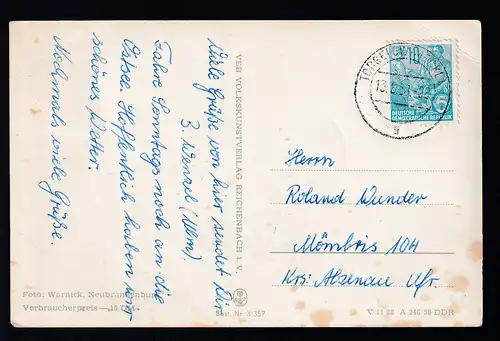 Viele Grüße von hier sendet Dir
Fahre Sonntags noch an die
Ostsee. Hoffentlich haben wir
schönes Wetter.
Nochmals viele Grüße.
VEB VOLKSKUNSTVERLAG REICHENBACH I. V.
10
DEUTSCHE
DEMOKRATISCHE REPUBLIK
Herrn
Roland Wunder
Mömbris 104
Krs. Alzenau Ufr.
Foto: Warnick, Neubrandenburg
Verbraucherpreis
Best. Nr. 3/357
V 11 28 A 246 58 DDR